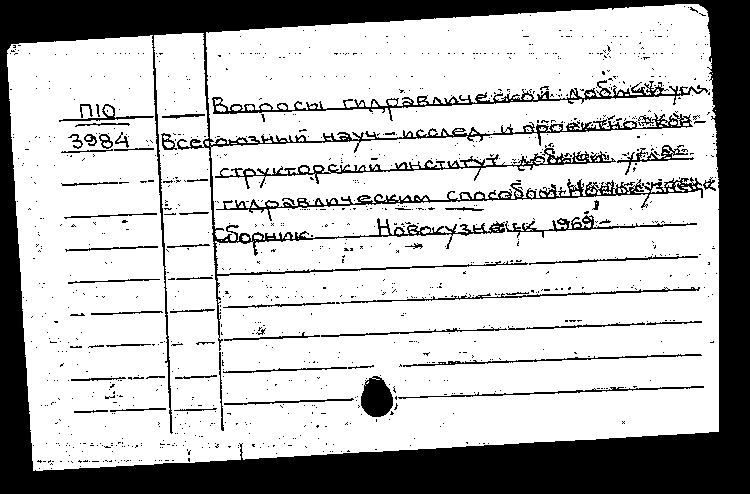 П10
Вопросы гидравлической добычи угля
3984
Всесоюзный науч-исслед и проектно-кон-
структорский институт добычи угля
гидравлическим способом. Новокузнецк
Сборник. Новокузнецк, 1969-